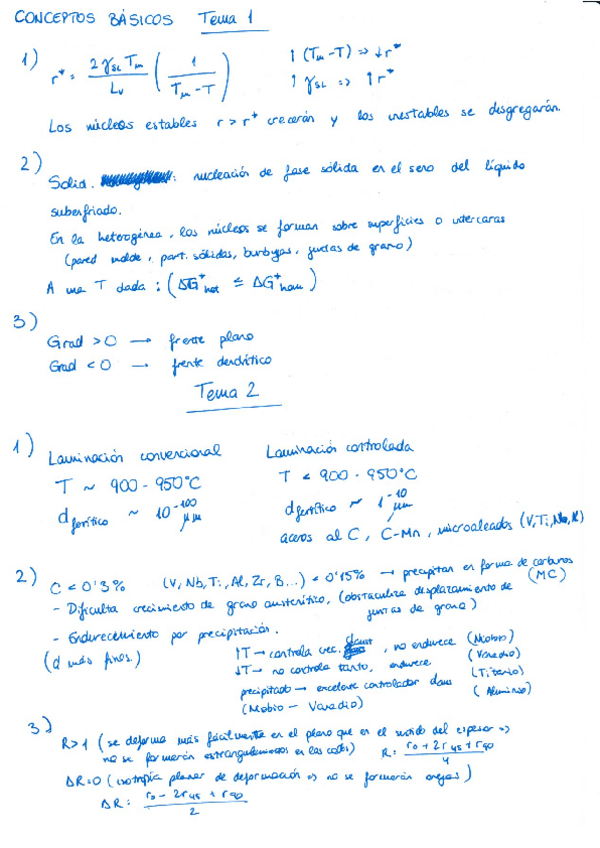 CONCEPTOS BÁSICOS Tema 1
1) r* = 2 γSL Tm / Lv ( 1 / Tm - T ) ↑ (Tm - T) => ↓ r*
↑ γSL => ↑ r*
Los núcleos estables r > r* crecerán y los inestables se disgregarán.
2) Solid. : nucleación de fase sólida en el seno del líquido
subenfriado.
En la heterogénea, los núcleos se forman sobre superficies o intercaras
(pared molde, part. sólidas, burbujas, juntas de grano)
A una T dada : ( ΔG*het ≤ ΔG*hom )
3) Grad > 0 → frente plano
Grad < 0 → frente dendrítico
Tema 2
1) Laminación convencional Laminación controlada
T ~ 900 - 950°C T < 900 - 950°C
dferrítico ~ 10-100 μm dferrítico ~ 1-10 μm
aceros al C, C-Mn, microaleados (V, Ti, Nb, )
2) C < 0'3% (V, Nb, Ti, Al, Zr, B...) < 0'15% → precipitan en forma de carburos
(MC)
- Dificulta crecimiento de grano austenítico, (obstaculiza desplazamiento de
juntas de grano)
- Endurecimiento por precipitación.
(d más finos.) ↑T → controla crec. , no endurece (Niobio)
↓T → no controla tanto, endurece (Vanadio)
precipitado → excelente controlador (Titanio)
(Niobio - Vanadio) (Aluminio)
3) R>1 (se deforma más fácilmente en el plano que en el sentido del espesor =>
no se formarán estrangulamientos en las ) R: r0 + 2r45 + r90 / 4
ΔR=0 (isotropía planar de deformación => no se formarán orejas)
ΔR: r0 - 2r45 + r90 / 2